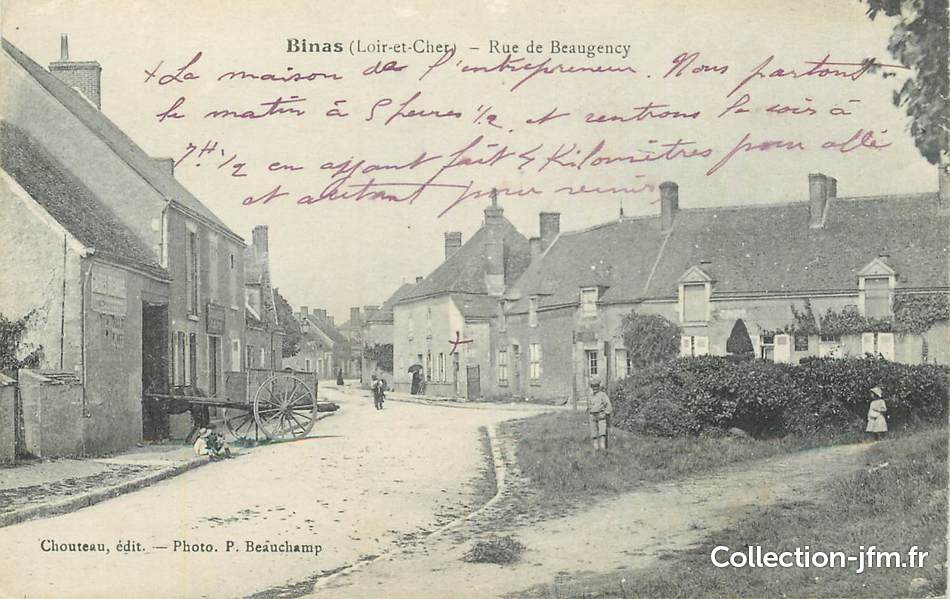 Binas (Loir-et-Cher) – Rue de Beaugency
+ La maison de l'entrepreneur. Nous partons
le matin à 5 heures 1/2 et rentrons le soir à
7H 1/2 en ayant fait 4 Kilomètres pour aller
et autant pour revenir
Chouteau, édit. — Photo. P. Beauchamp
Collection-jfm.fr